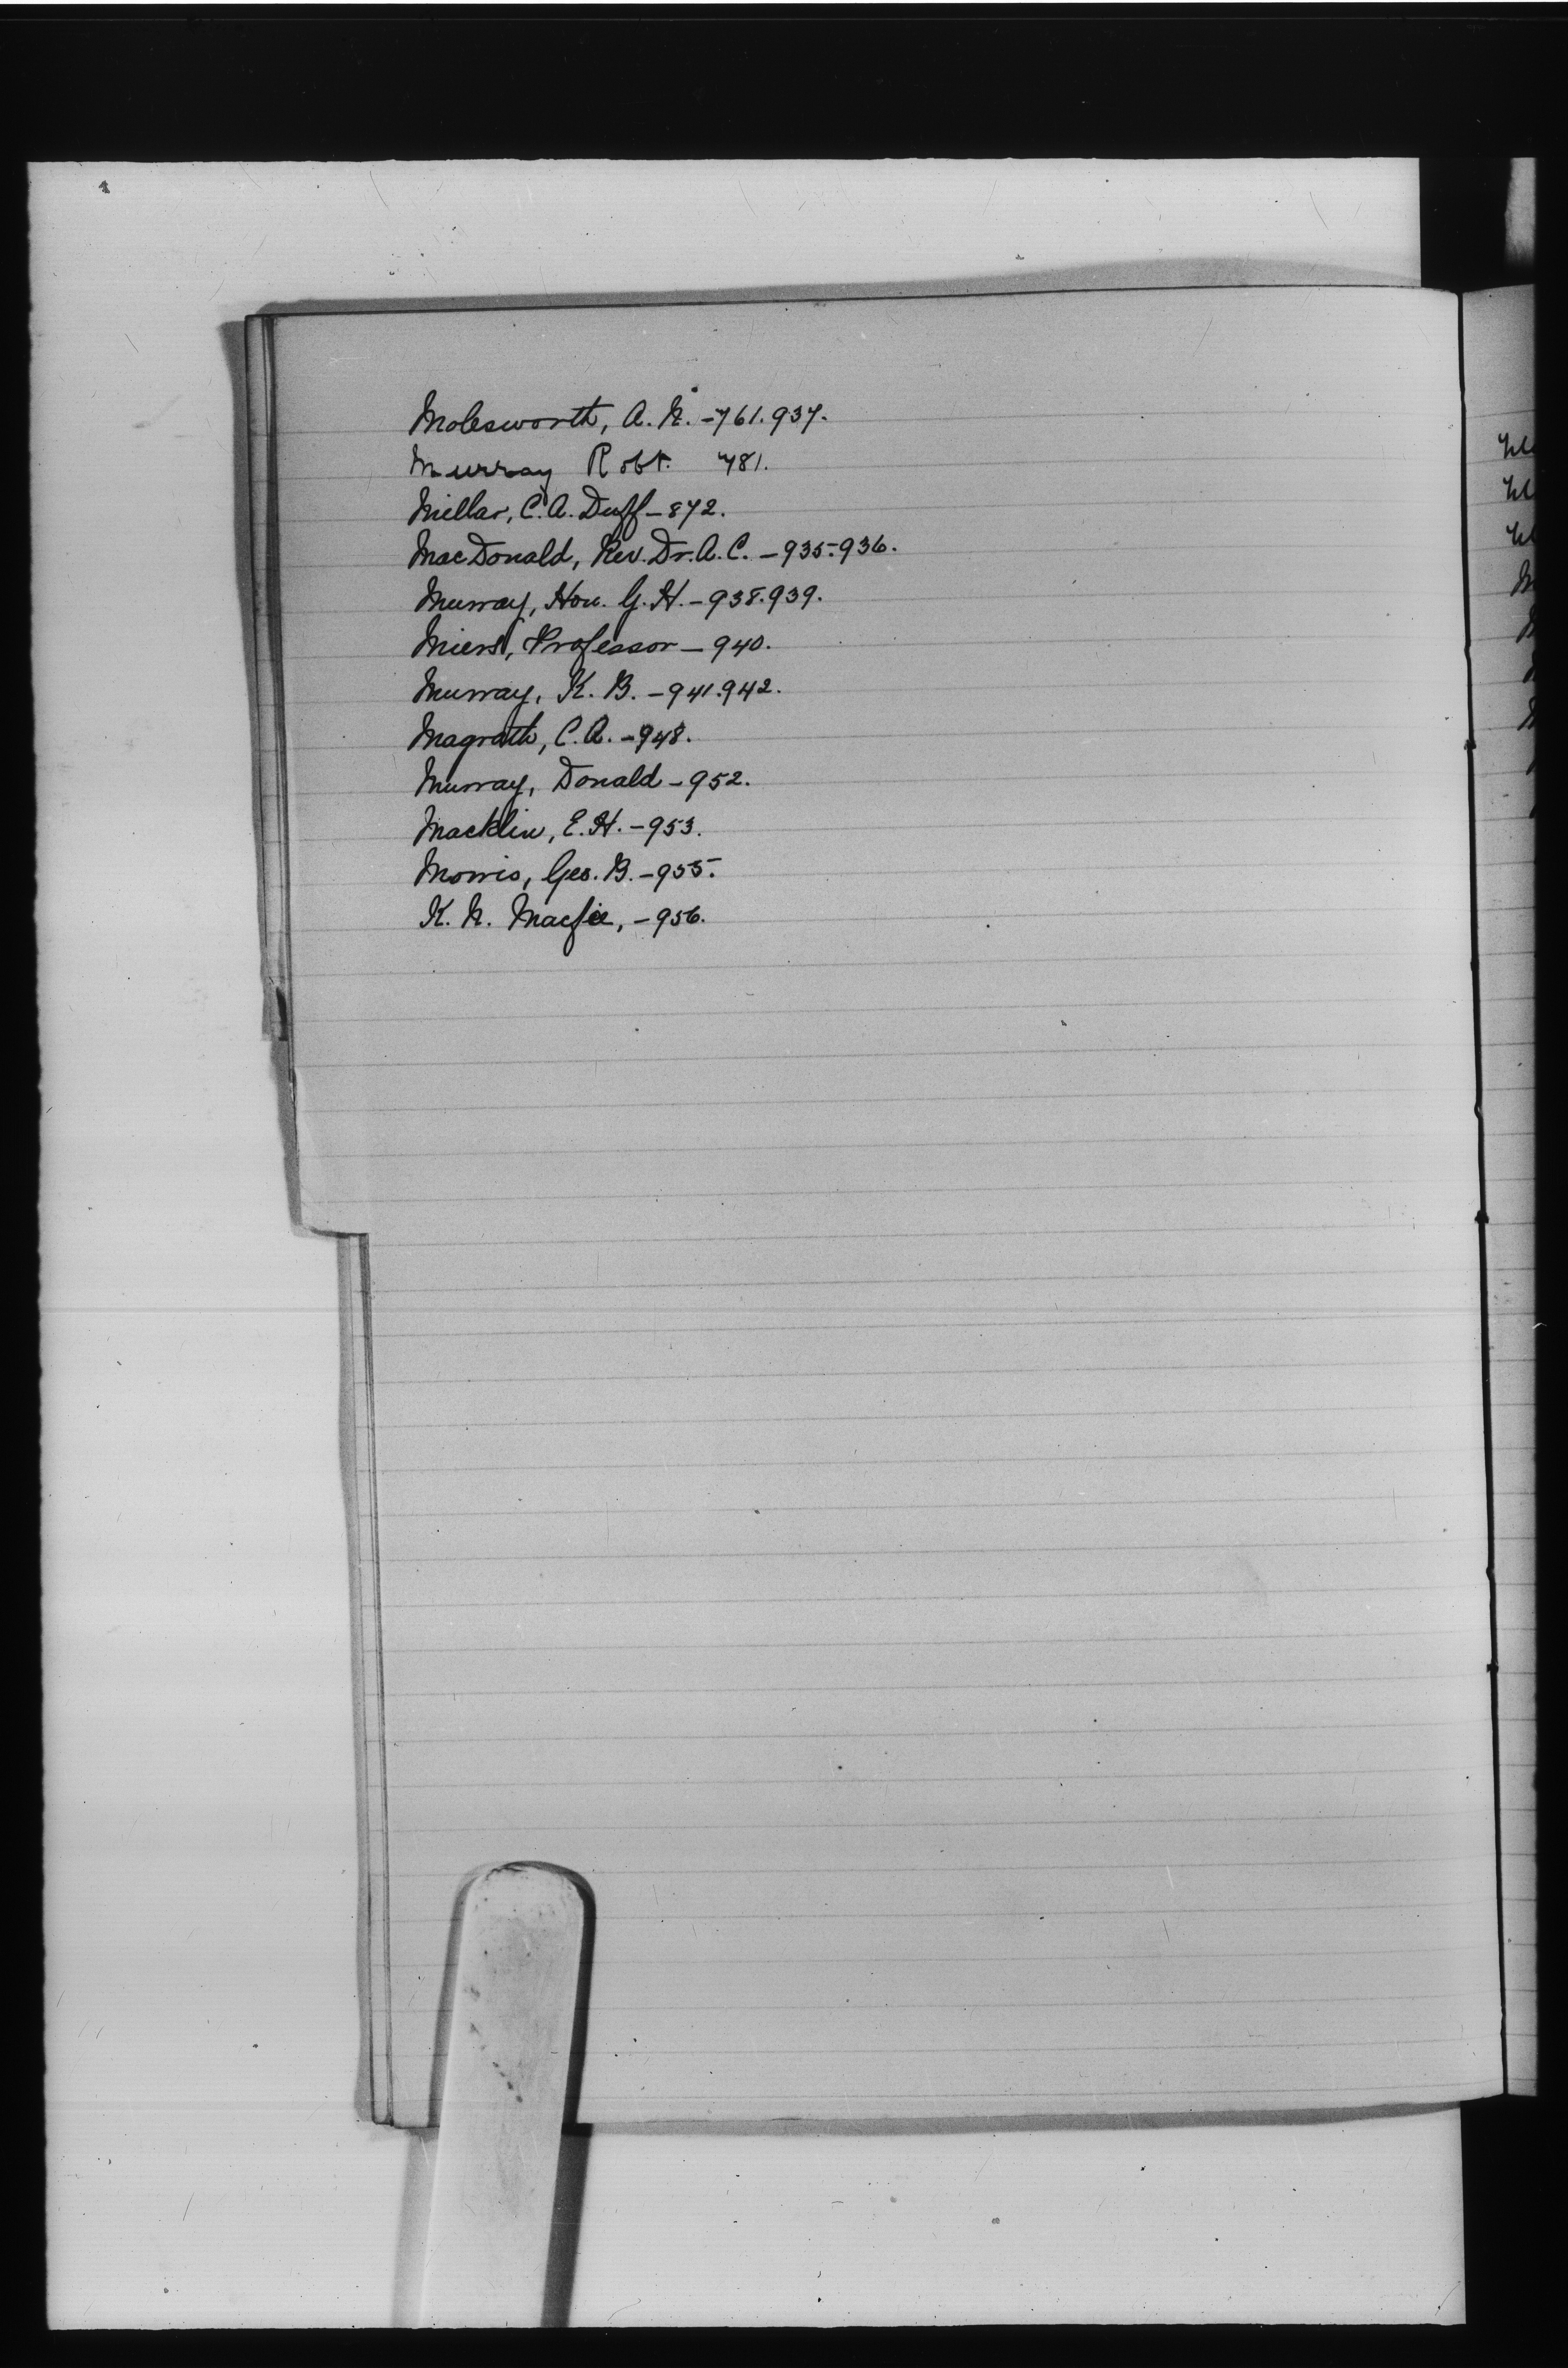 Molesworth, A. N. - 761.937.
Murray Robt. 781.
Millar, C. A. Duff - 872.
MacDonald, Rev. Dr. A. C. - 935.936.
Murray, Hon. G. H. - 938.939.
Miers, Professor - 940.
Murray, K. B. - 941.942.
Magrath, C. A. - 948.
Murray, Donald - 952.
Macklin, E. H. - 953.
Morris, Geo. B. - 955.
K. N. Macfie, - 956.